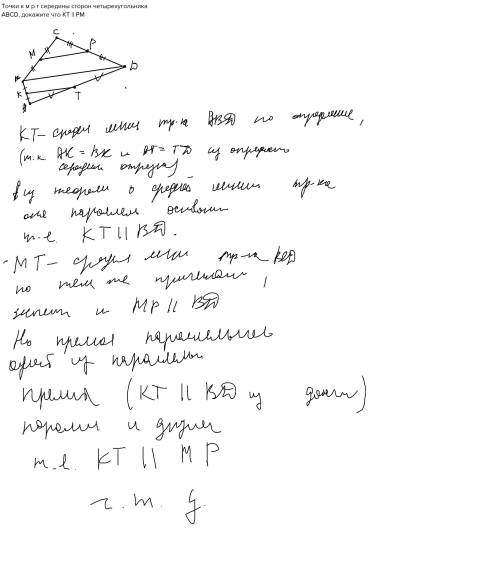 Точки к м р т середины сторон четырехугольника
ABCD, докажите что KT II PM
C
M
P
D
K
T
KT - средн линия тр-ка ABD по определению,
(т.к AK = BK и AT = TD из определ
середин отрезка)
из теоремы о средней линии тр-ка
она параллел основан
т.е. KT || BD.
MT - средн лин тр-ка BCD
по тем же причинам,
значит и MP || BD
Но прямая параллельная
одной из параллел
прямая (KT || BD из )
паралл и другой
т.е. KT || MP
ч.т.д.